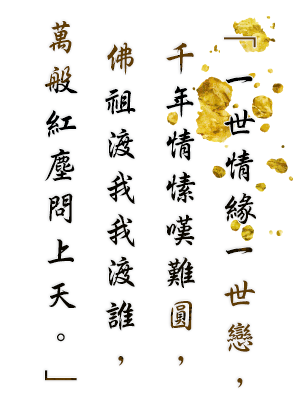 「一世情緣一世戀，
千年情愫嘆難圓，
佛祖渡我我渡誰，
萬般紅塵問上天。」